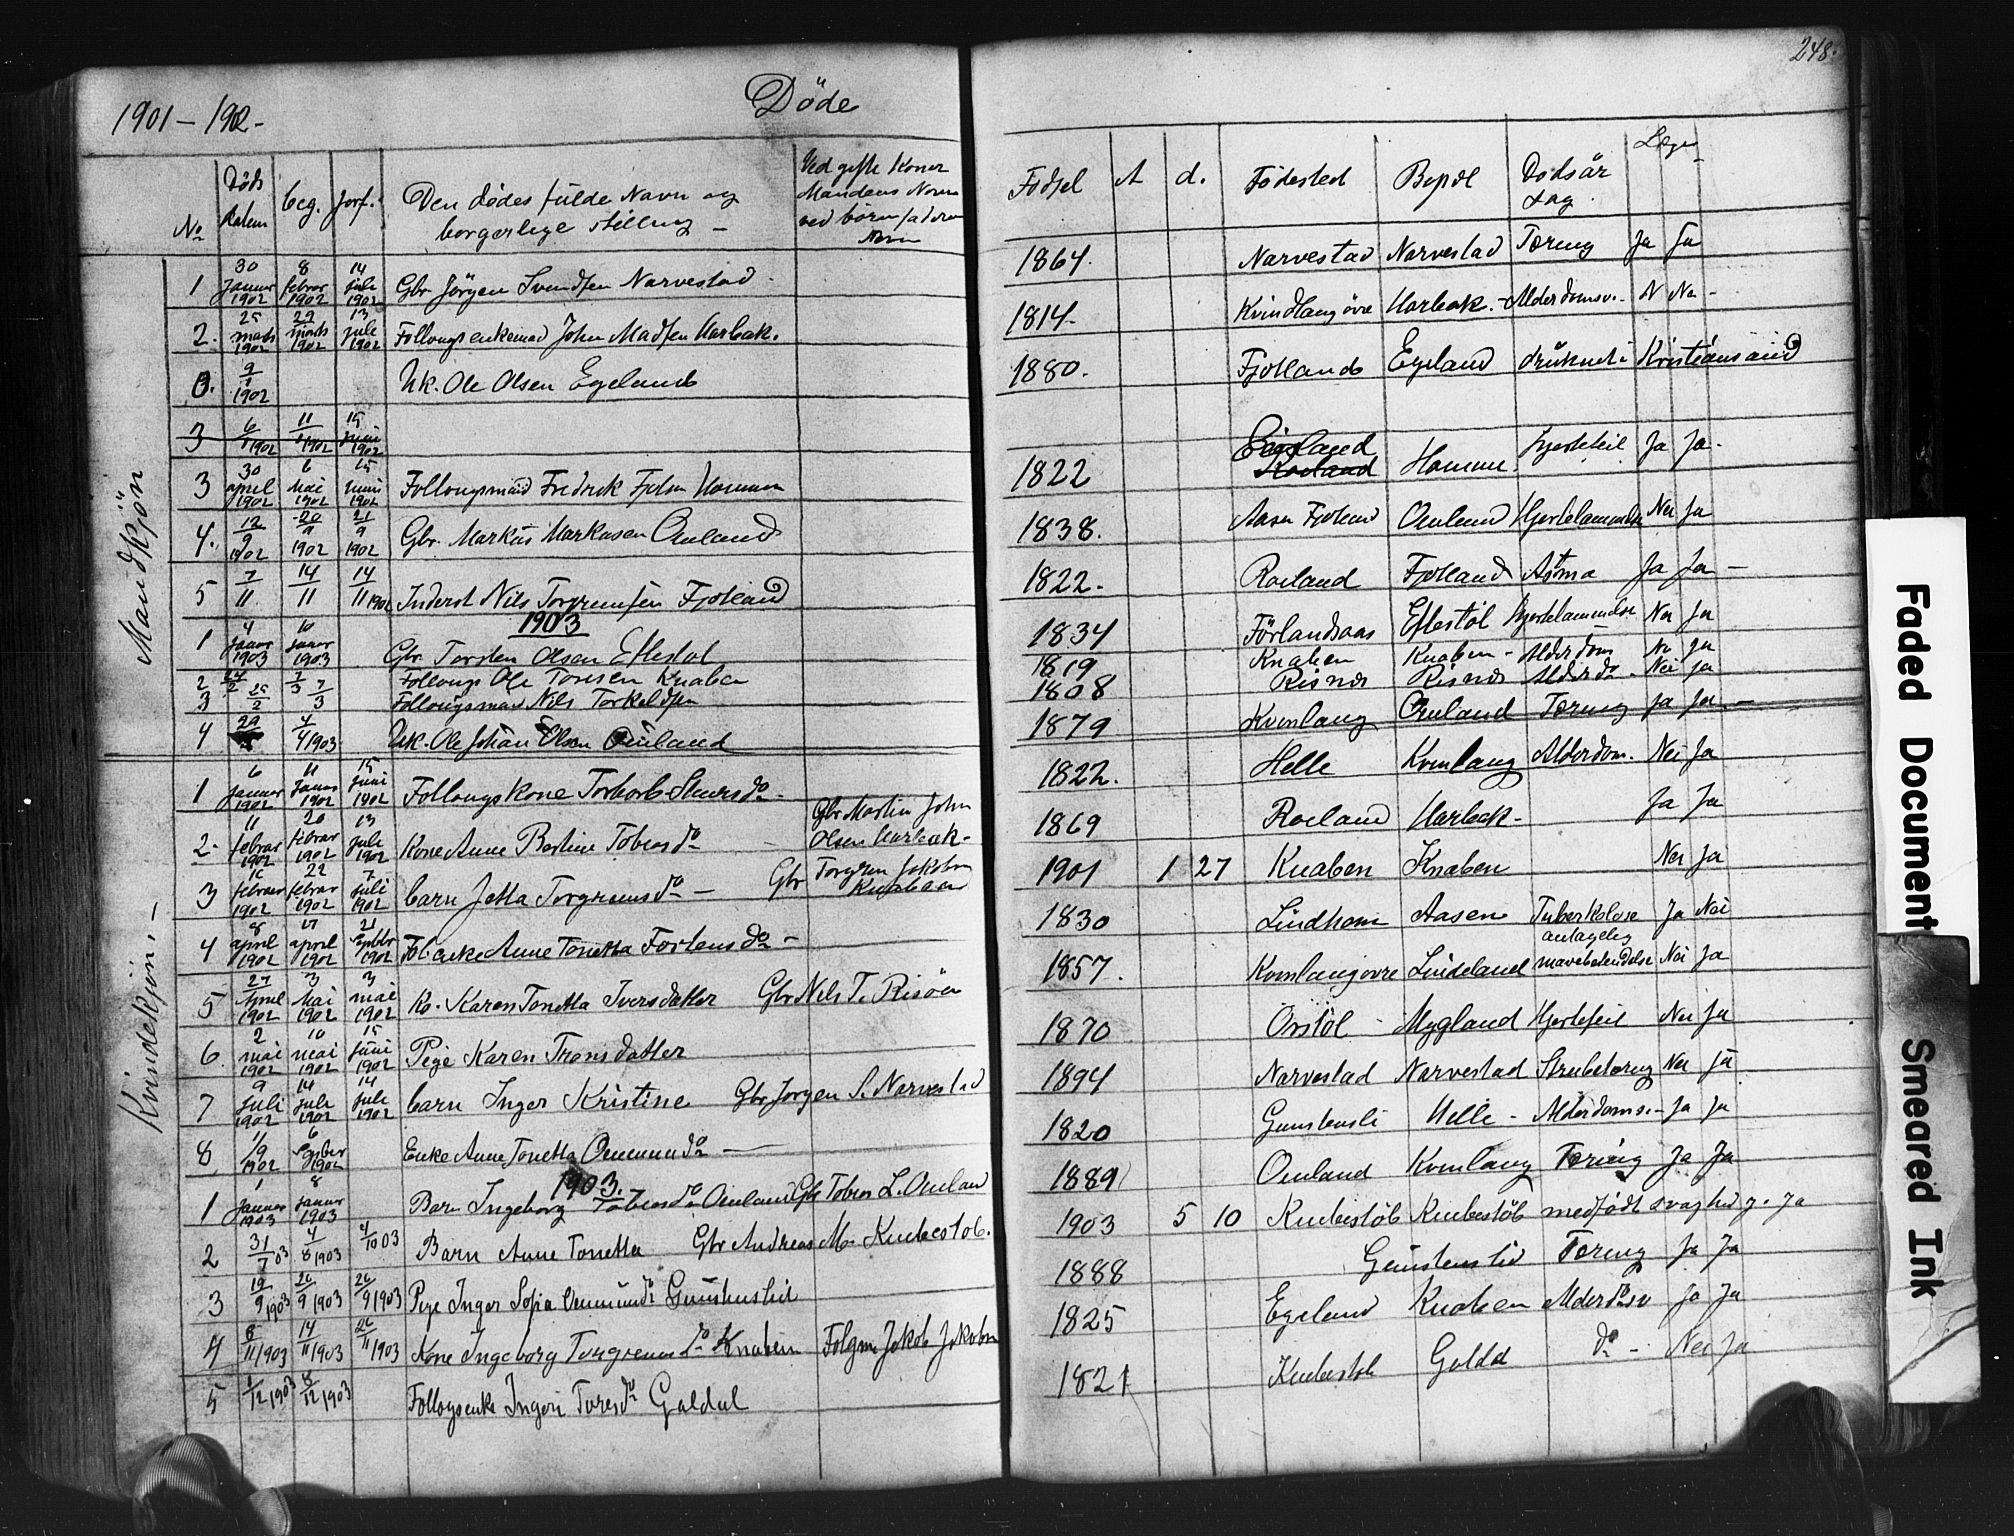 248.
1901 – 1902 –
Döde
No
Döds Datum
beg.
jorf.
Den dödes fulde Navn og borgerlige stilling –
Ved gifte Koner Mandens Navn ved börn faderens Navn
Födsel
d.
Födested
Bopæl
Dödsår sag.
Læge
Mandkjön
1 30 Januar 1902 8 februar 1902 14 juli 1902 Gbr Jörgen Svendsen Narvestad 1864. Narvestad Narvestad Tæring Ja Ja
2. 25 marts 1902 29 marts 1902 13 juli 1902 Follougsenkemand John Madsen Harbak. 1814 Harbak. – Alderdomssv. – N Nei –
1902 Uk. Ole Olsen Egeland 1880. Fjotland Egeland druknet i Kristiansand
3 6 1902 11 1902 15 juni 1902
3 30 april 1902 6 Mai 1902 15 juni 1902 Follougsmand Fredrik 1822 Egeland Roeland Homme Hjertefeil Ja Ja.
4. 12/9 1902 20/9 1902 21/9 1902 Gbr. Markus Markusen Omland 1838. Aasen Fjotland Omland Hjertelammelse Nei Ja
5 7/11 14/11 14/11 1902 Inderst Nils Torgrimsen Fjotland 1822. Roeland Fjotland Astma Ja Ja –
1903
1 4 Januar 1903 10 Januar 1903 Gbr Torsten Olsen Eftestöl 1834 Förlandsaas Eftestöl Hjertelammelse Nei Ja
2 24/2 7/3 Follougs Ole Tonesen Knaben 1819 Knaben Knaben – Alderdom Nei Ja
3 29/2 7/3 Follougsmand Nils Torkeldsen 1808 Risnes Risnes Alderdo. Nei Ja
4 29 4/4 1903 Uk. Ole Johan Olsen Omland 1879 Kvinlaug Omland Tæring Ja Ja –
Kvindekjön. –
1 6 Januar 1902 11 Januar 1902 15 Juni 1902 Follougskone Torborb 1822. Helle Kvinlaug Alderdom. Nei Ja
2. 11 februar 1902 20 februar 1902 13 juli 1902 Kone Anne Bertine Tobiasda – Gbr Martin John Olsen Harbak – 1869 Roeland Harbak – Ja Ja
3 februar 1902 22 februar 1902 7 juli 1902 barn Jetta Torgrimsda – Gbr Torgrim Jakobsen Knaben 1901 1 27 Knaben Knaben Nei Ja
4 8 april 1902 17 april 1902 21 septbr 1902 Fol. enke Anne Tonetta Tortensda – 1830 Lindhom Aasen Tuberkelose Ja Nei
5 27 April 1902 3 Mai 1902 3 mai 1902 Ko. Karen Tonetta Iversdatter Gbr Nils T. Risöen 1857. Kvinlaugovre Lindeland antagelig mavebetendelse Nei Ja
6 2 mai 1902 10 mai 1902 15 Juni 1902 Pige Karen Tronsdatter 1870 Örstöl – Mygland Hjertefeil Nei Ja
7 9 juli 1902 14 juli 1902 14 juli 1902 barn Inger Kristine Gbr Jorgen S. Narvestad 1894 Narvestad Narvestad Strubetæring Nei Ja
8 1/9 1902 6 septber 1902 Enke Anne Tonetta Omunda – 1820 Gunstensli Helle – Alderdomss. – Ja Ja
1903.
1 1 Januar 1903 8 Januar 1903 Barn Ingeborg Tobiasda Omland Gbr Tobias L. Omland 1889 Omland Kvinlaug Tæring Ja Ja
2 31/7 03 4/8 1903 4/10 03 Barn Anne Tonetta Gbr Andreas M. Knabestöb. 1903 5 10 Knabestöb Knabestöb medfödt svaghed J. Ja
3 19/9 1903 26/9 1903 26/9 1903 Pige Inger Sofia Ommundda Gunstenslid 1888 Gunstenslid Tæring Ja Ja
4 8/11 1903 14/11 1903 26/11 1903 Kone Ingeborg Torgrimsda Knaben Folgm Jakob Jakobsen 1825 Egeland Knaben Alderdssv Ja Ja
5 1/12 1903 8/12 1903 Follougsenke Ingeri Toresda Goldal 1821 Knabestöb Goldal do – Nei Ja
Faded Document
Smeared Ink